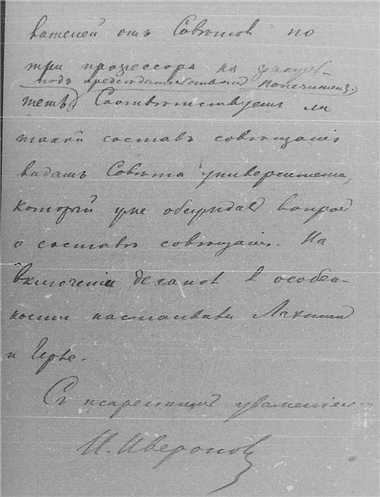 вателей отъ Советовъ по
три профессора на факуль-
подъ председательствомъ Попечителя,
тетъ) Соответствуетъ ли
такой составъ совещанія
видамъ Совета университета,
который уже обсуждалъ вопросъ
о составе совещанія. На
включеніи декановъ в особен-
ности настаивали
и Герье.
Съ искреннимъ уваженіемъ